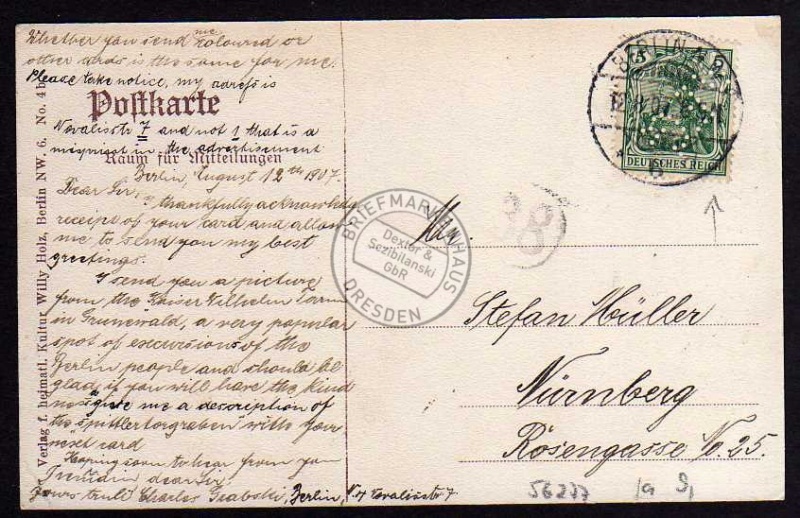 Whether you send me koloured or
other cards is the same for me.
Please take notice, my adress is
Postkarte
Novalisstr 7 and not 1 that is a
misprint in the advertisement
Raum für Mitteilungen
Berlin, August 12th 1907.
Dear Sir,
I thankfully acknowledg
receipe of your card and allow
me to send you my best
greetings.
I send you a picture
from the Kaiser Wilhelm Turm
in Grunewald, a very popular
spot of excursions of the
Berlin people and should be
glad, if you will have the kind
ness give me a description of
the spittlertorgraben with your
next card
Hoping soon to hear from you
I remain dear Sir
Yours truli Charles Grabski, Berlin, N. 4 Novalisstr 7
Verlag f. heimatl. Kultur Willy Holz, Berlin NW. 6. No. 4b
BERLIN
12.8.07
DEUTSCHES REICH
38
BRIEFMARKENHAUS
Dexler &
Sezibilanski
GbR
DRESDEN
Stefan Müller
Nürnberg
Rosengasse No. 25.
56277